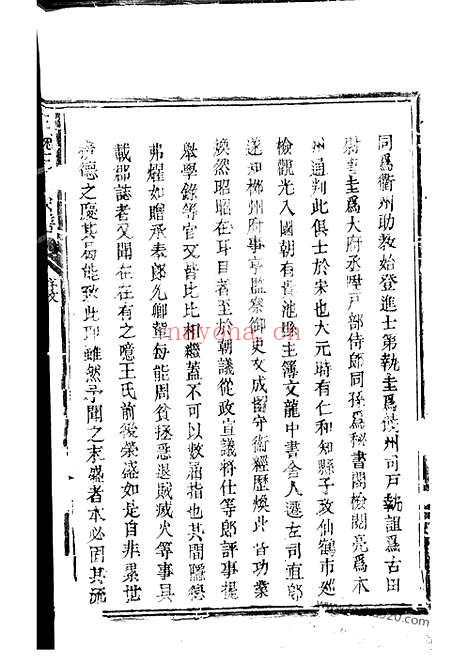 同爲衢州助教始登進士第執圭爲饒州司戸執誼爲古田
尉壽圭爲大府丞曄戸部侍郎同孫爲秘書閣檢閱亮爲本
州通判此俱士於宋也大元時有仁和知縣子敬仙鶴市廵
檢觀光入國朝有貴池縣主簿文龍中書舍人遷左司直郎
遂知郴州府事亨監察御史文成留守衛經歷煥此皆功業
煥然昭昭在耳目著至於朝議從政宣議將仕等郎評事提
舉學錄等官又皆比比相繼蓋不可以數涌指也其間隱德
弗燿如贈承素郎允卿輩每能周貧拯惡退賊滅火等事具
載郡誌者又聞在在有之噫王氏前後榮盛如是自非累世
德之慶其曷能致此耶雖然予聞之末盛者本必固其流
nayona.cn